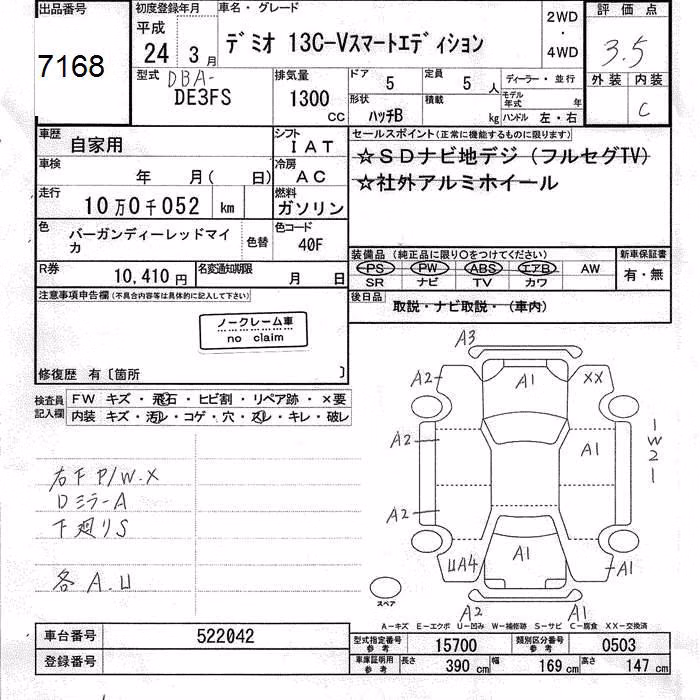 出品番号
7168
初度登録年月
平成
24 3月
車名・グレード
デミオ 13C-Vスマートエディション
2WD
・
4WD
評価点
3.5
外装 内装
C
型式 DBA-
DE3FS
排気量
1300
CC
ドア 5
定員 5人
ディーラー・並行
形状
ハッチB
積載 kg
モデル年式 年
ハンドル 左・右
車歴
自家用
シフト
IAT
車検
年 月( 日)
冷房
AC
走行
10万0千052 km
燃料
ガソリン
色
バーガンディーレッドマイカ
色替
色コード
40F
R券
10,410円
名変通知期限
月 日
セールスポイント(正常に機能するものに限ります)
☆SDナビ地デジ(フルセグTV)
☆社外アルミホイール
装備品(純正品に限り○をつけてください)
PS PW ABS エアB AW
SR ナビ TV カワ
新車保証書
有・無
後日品
取説・ナビ取説・(車内)
注意事項申告欄(不具合内容等は具体的に記入して下さい)
ノークレーム車
no claim
修復歴 有〔箇所 〕
検査員記入欄
FW キズ・飛石・ヒビ割・リペア跡・×要
内装 キズ・汚レ・コゲ・穴・スレ・キレ・破レ
右下P/W.X
DミラーA
下廻りS
各A.U
A3
A2
A1
XX
A2
A1
1
W
2
1
A2
UA4
A1
A1
A2
A1
スペア
A-キズ E-エクボ U-凹み W-補修跡 S-サビ C-腐食 XX-交換済
車台番号
522042
登録番号
型式指定番号
参考
15700
類別区分番号
参考
0503
車庫証明用
参考
長さ 390cm
幅 169cm
高さ 147cm